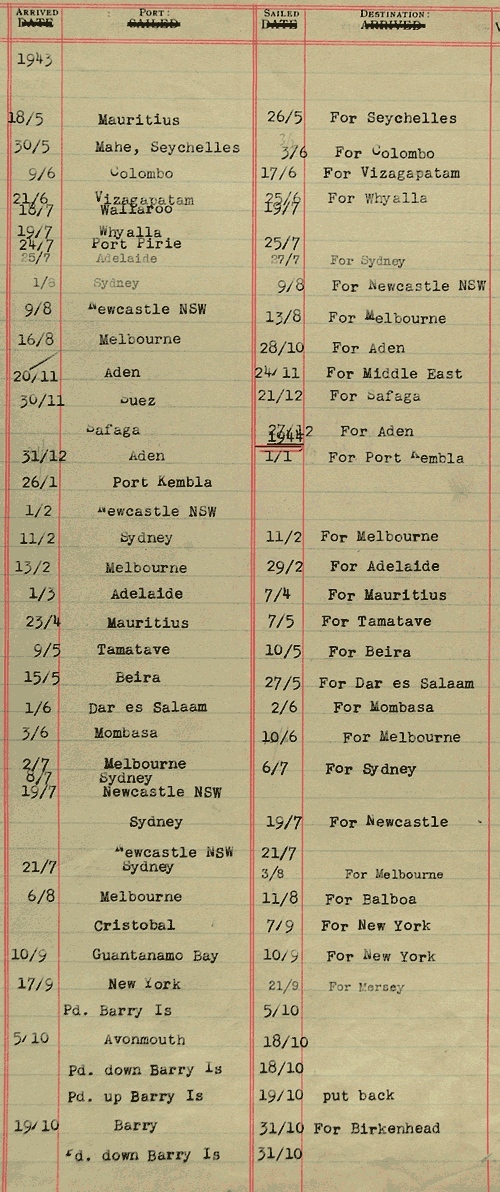 ARRIVED PORT: SAILED DESTINATION:
DATE SAILED DATE ARRIVED
1943
18/5 Mauritius 26/5 For Seychelles
30/5 Mahe, Seychelles 3/6 For Colombo
9/6 Colombo 17/6 For Vizagapatam
21/6 Vizagapatam 25/6 For Whyalla
18/7 Wallaroo 19/7
19/7 Whyalla
24/7 Port Pirie 25/7
25/7 Adelaide 27/7 For Sydney
1/8 Sydney 9/8 For Newcastle NSW
9/8 Newcastle NSW 13/8 For Melbourne
16/8 Melbourne 28/10 For Aden
20/11 Aden 24/11 For Middle East
30/11 Suez 21/12 For Safaga
Safaga 27/12 For Aden
1944
31/12 Aden 1/1 For Port Kembla
26/1 Port Kembla
1/2 Newcastle NSW
11/2 Sydney 11/2 For Melbourne
13/2 Melbourne 29/2 For Adelaide
1/3 Adelaide 7/4 For Mauritius
23/4 Mauritius 7/5 For Tamatave
9/5 Tamatave 10/5 For Beira
15/5 Beira 27/5 For Dar es Salaam
1/6 Dar es Salaam 2/6 For Mombasa
3/6 Mombasa 10/6 For Melbourne
2/7 Melbourne 6/7 For Sydney
8/7 Sydney
19/7 Newcastle NSW
Sydney 19/7 For Newcastle
Newcastle NSW 21/7
21/7 Sydney 3/8 For Melbourne
6/8 Melbourne 11/8 For Balboa
Cristobal 7/9 For New York
10/9 Guantanamo Bay 10/9 For New York
17/9 New York 21/9 For Mersey
Pd. Barry Is 5/10
5/10 Avonmouth 18/10
Pd. down Barry Is 18/10
Pd. up Barry Is 19/10 put back
19/10 Barry 31/10 For Birkenhead
Pd. down Barry Is 31/10